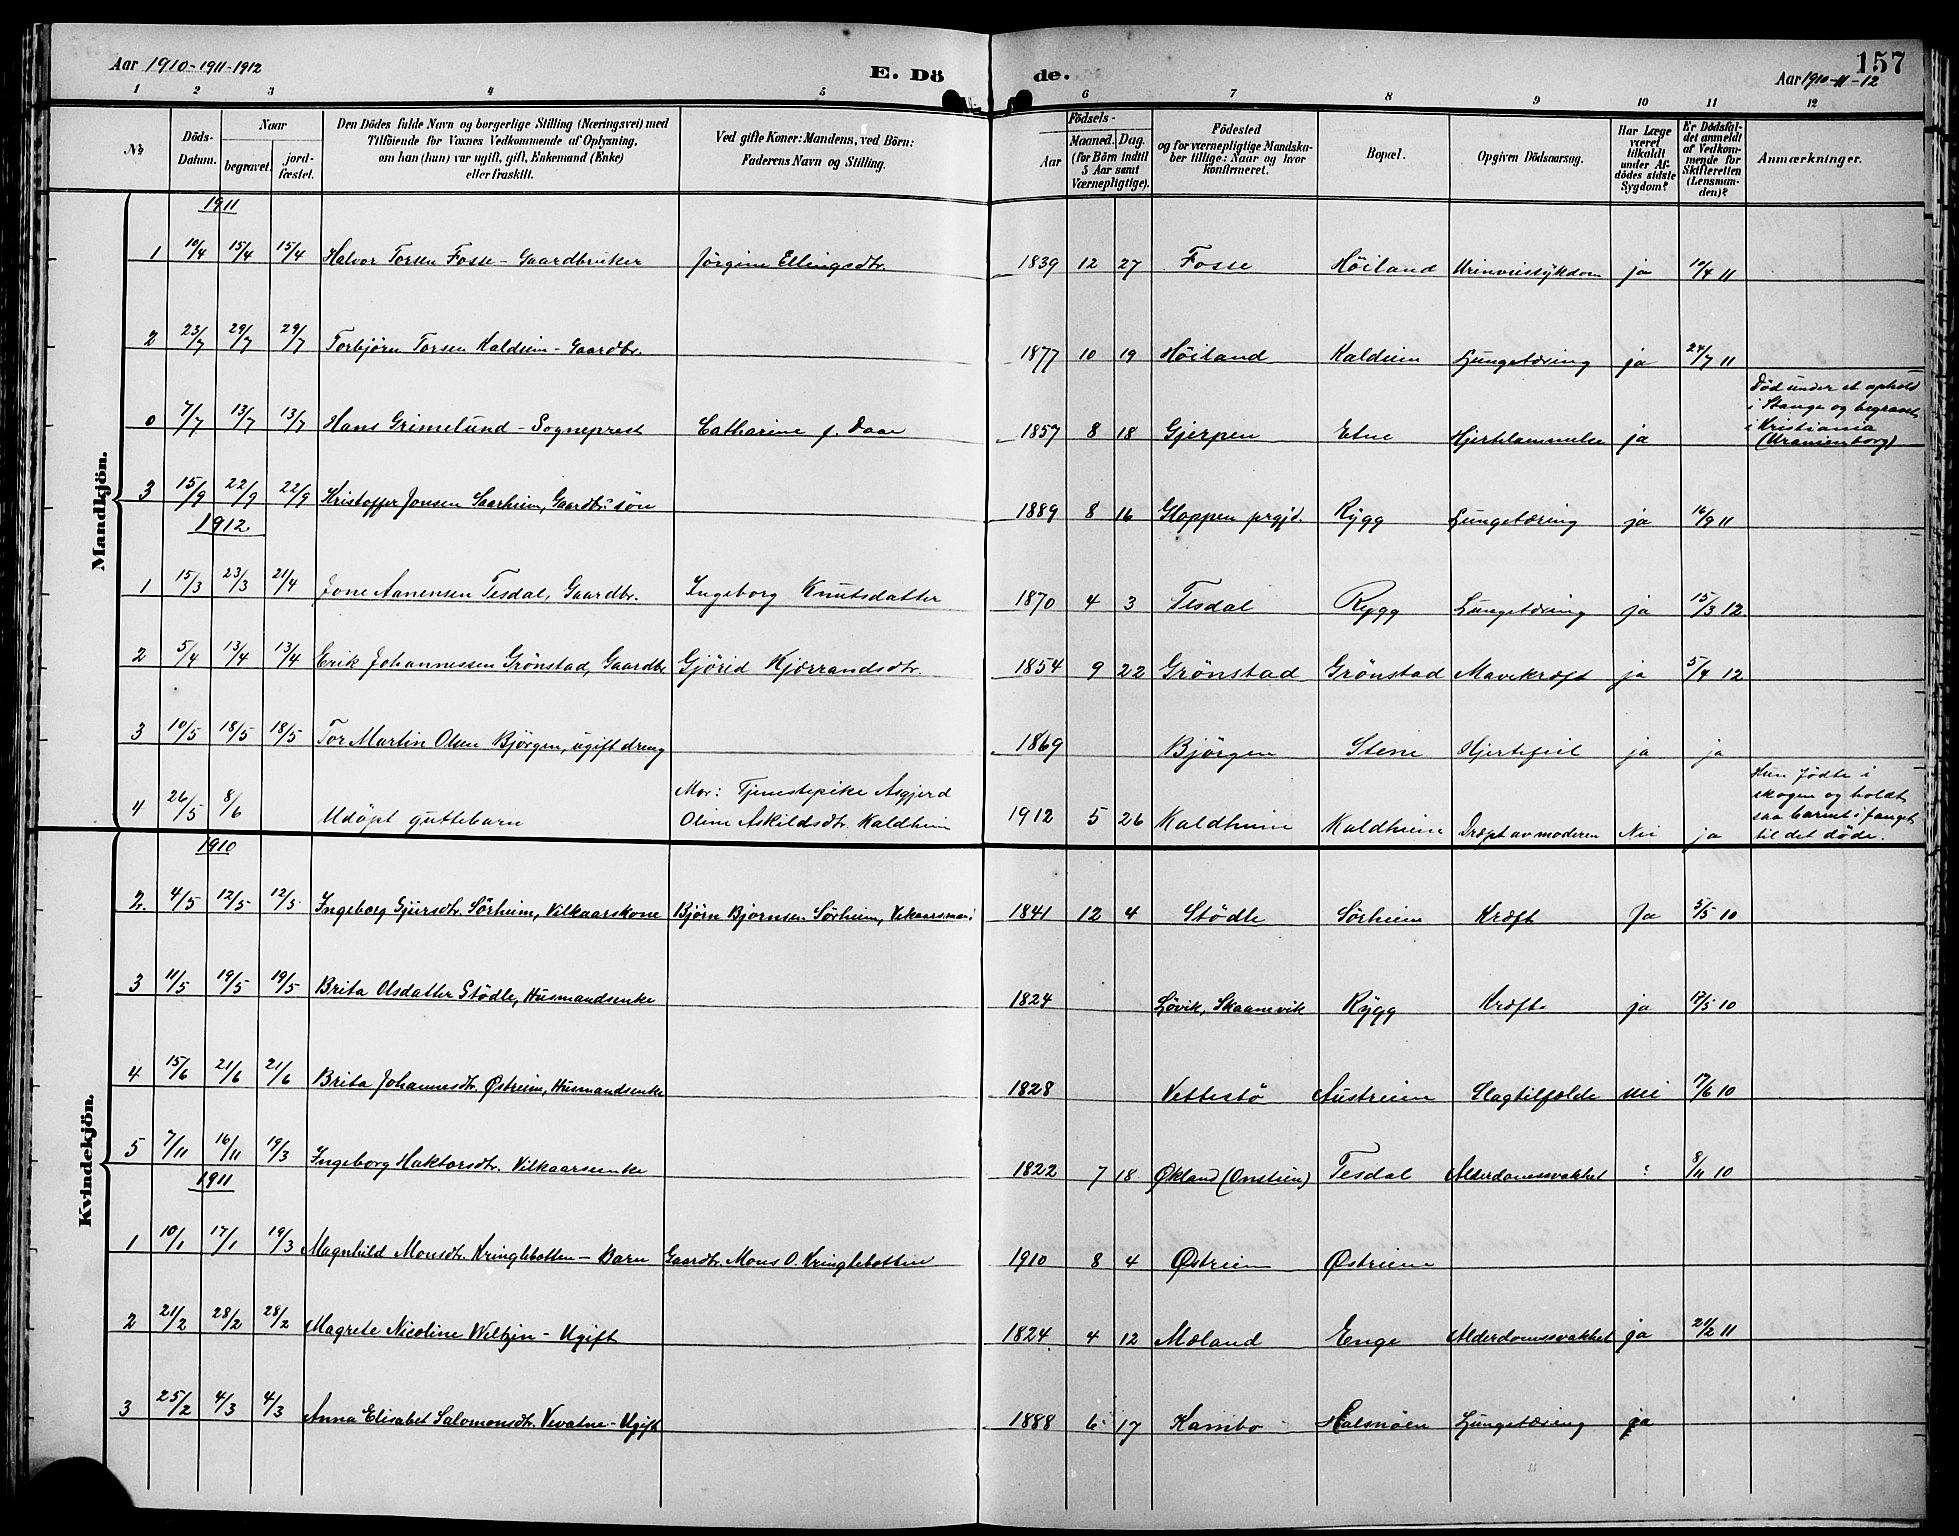 Aar 1910-1911-1912
E. Dö
de.
157
Aar 1910-11-12
1 2 3 4 5 6 7 8 9 10 11 12
No
Döds-Datum.
Naar
begravet.
jord-fæstet.
Den Dödes fulde Navn og borgerlige Stilling (Næringsvei) med
Tilföiende for Voxnes Vedkommende af Oplysning,
om han (hun) var ugift, gift, Enkemand (Enke)
eller fraskilt.
Ved gifte Koner: Mandens, ved Börn:
Faderens Navn og Stilling.
Födsels-
Aar
Maaned. Dag.
(for Börn indtil
5 Aar samt
Værnepligtige).
Födested
og for værnepligtige Mandska-
ber tillige: Naar og hvor
konfirmeret.
Bopæl.
Opgiven Dödsaarsag.
Har Læge
været
tilkaldt
under Af-
dödes sidste
Sygdom?
Er Dödsfal-
det anmeldt
af Vedkom-
mende for
Skifteretten
(Lensman-
den)?
Anmærkninger.
Mandkjön.
1911
1 10/4 15/4 15/4 Halvor Torsen Fosse - Gaardbruker Jörgine Ellingsdtr. 1839 12 27 Fosse Höiland Urinveissykdom ja 10/4 11
2 23/7 29/7 29/7 Torbjørn Torsen Kaldeim - Gaardbr. 1877 10 19 Höiland Kaldeim Lungetæring ja 24/7 11
0 7/7 13/7 13/7 Hans Grimelund - Sogneprest Catharine f. Daae 1857 8 18 Gjerpen Etne Hjertelammelse ja
Död under et ophold
i Stange og begravet
i Kristiania
(Uranienborg)
3 15/9 22/9 22/9 Kristoffer Jonsen Saarheim, Gaardbr. sön 1889 8 16 Gloppen prgjd. Rygg Lungetæring ja 16/9 11
1912
1 15/3 23/3 21/4 Jone Aanensen Tesdal, Gaardbr. Ingeborg Knutsdatter 1870 4 3 Tesdal Rygg Lungetæring ja 15/3 12
2 5/4 13/4 13/4 Erik Johannessen Grönstad, Gaardbr. Gjörid Kjærrandsdtr. 1854 9 22 Grönstad Grönstad Mavekræft ja 5/4 12
3 10/5 18/5 18/5 Tor Martin Olsen Bjørgen, ugift dreng 1869 Bjørgen Stene Hjertefeil ja ja
4 26/5 8/6 Udöpt guttebarn
Mor: Tjenestepike Asgjerd
Oline Askildsdtr. Kaldheim 1912 5 26 Kaldheim Kaldheim Dræpt av moderen Nei ja
Hun födte i
skogen og holdt
saa barnet i fanget
til det döde.
Kvindekjön.
1910
2. 4/5 12/5 12/5 Ingeborg Gjursdtr. Sörheim, Vilkaarskone Björn Björnsen Sörheim, Vikaarsman 1841 12 4 Stödle Sörheim Kræft Ja 5/5 10
3 11/5 19/5 19/5 Brita Olsdatter Stödle, Husmandsenke 1824 Løvik, Skaanevik Rygg Kræft ja 12/5 10
4 15/6 21/6 21/6 Brita Johannesdtr. Østreim, Husmandsenke 1828 Vettestö Austreim Slagtilfælde nei 17/6 10
5 7/11 16/11 19/3 Ingeborg Haktorsdtr. Vilkaarsenke 1822 7 18 Økland (Onstein) Tesdal Alderdomssvakhet ? 8/11 10
1911
1 10/1 17/1 19/3 Magnhild Monsdtr. Kringlebotten - Barn Gaardbr. Mons O. Kringlebotten 1910 8 4 Østreim Østreim
2 21/2 28/2 28/2 Magrete Nicoline Weltzin - Ugift 1824 4 12 Mæland Enge Alderdomssvakhet ja 21/2 11
3 25/2 4/3 4/3 Anna Elisabet Salomonsdtr. Vevatne - Ugift 1888 6 17 Kambo Halsnöen Lungetæring ja